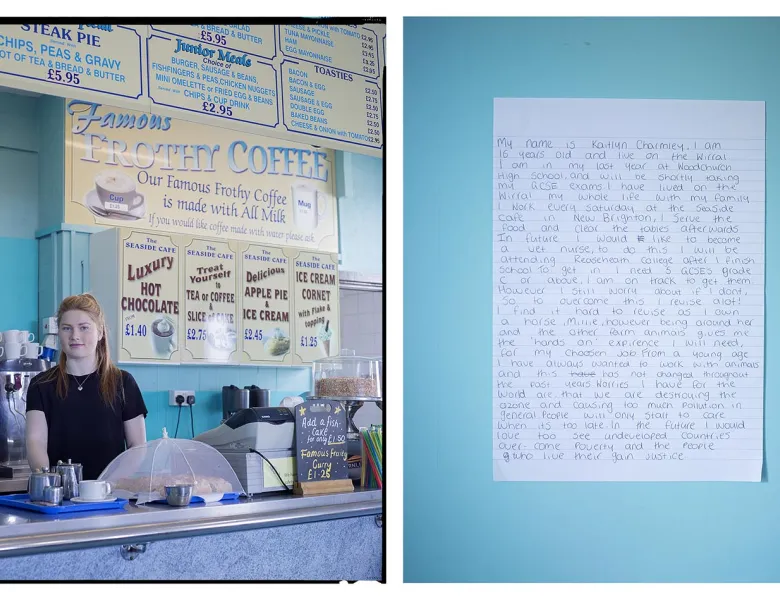 STEAK PIE
CHIPS, PEAS & GRAVY
POT OF TEA & BREAD & BUTTER
£5.95
& BREAD & BUTTER
£5.95
Junior Meals
Choice of
BURGER, SAUSAGE & BEANS,
FISHFINGERS & PEAS, CHICKEN NUGGETS
MINI OMELETTE or FRIED EGG & BEANS
CHIPS & CUP DRINK
£2.95
CHEESE & PICKLE
TUNA MAYONNAISE
HAM
EGG MAYONNAISE
TOASTIES
BACON
BACON & EGG
SAUSAGE
SAUSAGE & EGG
DOUBLE EGG
BAKED BEANS
CHEESE & ONION with TOMATO
Famous
FROTHY COFFEE
Our Famous Frothy Coffee
is made with All Milk
If you would like coffee made with water please ask.
Cup
Mug
The
SEASIDE CAFE
Luxury
HOT
CHOCOLATE
£1.40
The
SEASIDE CAFE
Treat
Yourself
to
TEA or COFFEE
&
SLICE of CAKE
£2.75
The
SEASIDE CAFE
Delicious
APPLE PIE
&
ICE CREAM
£2.45
The
SEASIDE CAFE
ICE CREAM
CORNET
with Flake &
topping
£1.25
Add a fish
cake
for only £1.50
Famous fruity
Curry
£1.25
My name is Kaitlyn Charmley. I am
16 years old and live on the Wirral
I am in my last year at Woodchurch
High School, and will be shortly taking
my GCSE exams. I have lived on the
Wirral my whole life with my family
I work every saturday at the Seaside
Cafe in New Brighton, I serve the
food and clear the tables afterwards
In future I would like to become
a vet nurse, to do this I will be
attending Reaseheath College after I finish
School. To get in I need 5 GCSES grade
C or above, I am on track to get them
However I still worry about if I dont,
So to overcome this I revise alot!
I find it hard to revise as I own
a horse, Millie, however being around her
and the other farm animals gives me
the "hands on" expirence I will need,
for my choosen job. From a young age
I have always wanted to work with animals
and this has not changed throughout
the past years. Worries I have for the
world are that we are destroying the
ozone and causing too much pollution, in
general. People will only start to care
when its too late. In the future I would
love too see undeveloped countries
over come Poverty and the People
who live their gain Justice